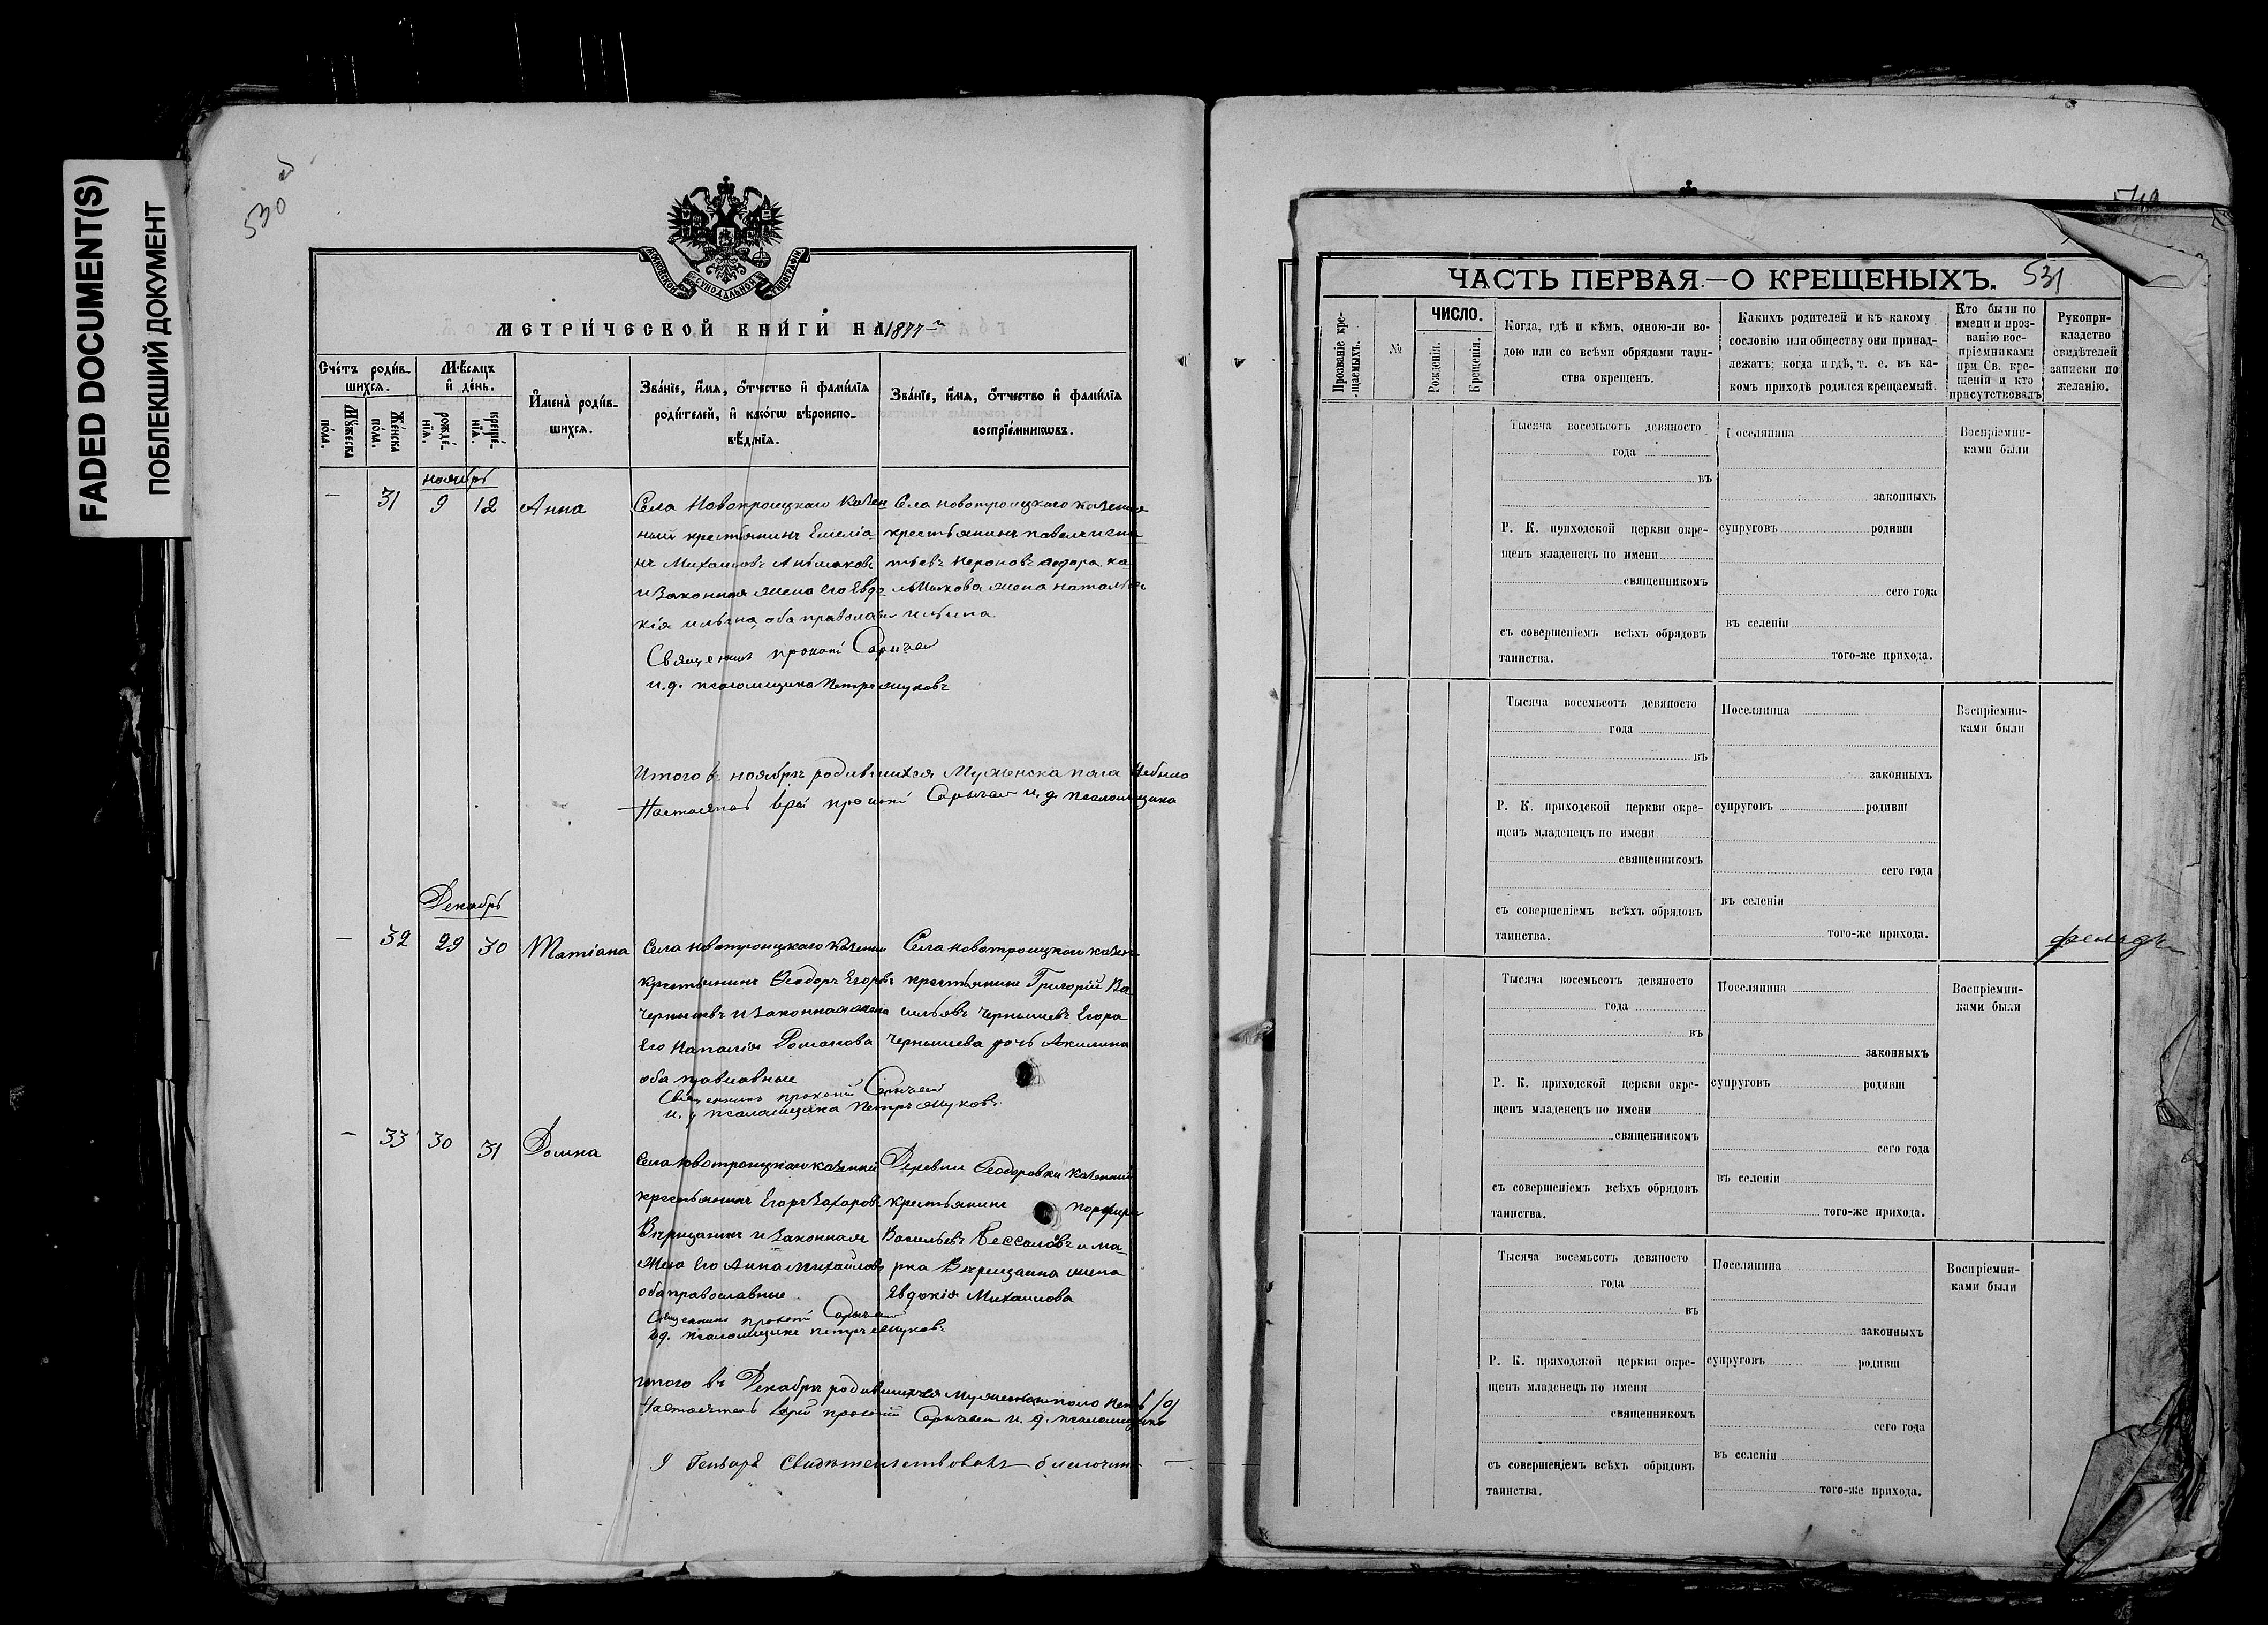 FADED DOCUMENT(S)
ПОБЛЕКШИЙ ДОКУМЕНТ
530 об
МОСКОВСКОЙ СѴНОДАЛЬНОЙ ТИПОГРАФІИ
МЕТРИЧЕСКОЙ КНИГИ НА 1877
Счетъ родив-
шихся.
Мѣсяцъ
и день.
Мужеска
пола.
Женска
пола.
рожде-
нія.
креще-
нія.
Имена родив-
шихся.
Званіе, имя, отчество и фамилія
родителей, и какогѡ вѣроиспо-
вѣданія.
Званіе, имя, отчество и фамилія
воспріемникѡвъ.
ноябрь
— 31 9 12 Анна
Села Новотроицкаго Казен
ный крестьянинъ Емеліа
нъ Михаиловъ
и законная жена его Евдо
кія Ильина оба православн
Села новотроицкаго казенна
крестьянинъ павелъ игна
тьевъ Нероновъ
жена наталья
ильина
Священникъ прокопій Сарычев
и. д. псаломщика Петръ Жуковъ
Итого в ноябрѣ родившихся Мужеска пола Небыло
Настоятель Іерей прокопій Сарычев и. д. псаломщика
Декабрь
— 32 29 30 Татіана
Села новотроицкаго казенный
крестьянинъ Ѳеодоръ Егоровъ
Чернышевъ и законная жена
Его Наталія Романова
оба правлавные
Села новотроицкого казен
крестьянинъ Григорій Ва
сильевъ Чернышевъ Егора
Чернышева дочь Акилина
Священникъ прокопій Сарычев
и. д псаломщика Петръ Жуковъ
— 33 30 31 Домна
Села новотроицкаго казенный
крестьянинъ Егоръ Захаровъ
и законная
жена Его Анна Михайлова
оба православные
Деревни Ѳеодоровки казенный
крестьянинъ порфирій
Васильевъ Бессоловъ и ма
рка жена
Евдокія Михаилова
Священникъ прокопій Сарычев
и д. псаломщика петръ Жуковъ
итого въ Декабрѣ родившихся Мужеска поло нетъ /0/
Настоятель Іерей прокопій Сарычев и. д. псаломщика
9 Генваря Свидѣтельствовалъ благочин
531
ЧАСТЬ ПЕРВАЯ.—О КРЕЩЕНЫХЪ.
Прозваніе кре-
щаемыхъ.
№
ЧИСЛО.
Рожденія.
Крещенія.
Когда, гдѣ и кѣмъ, одною-ли во-
дою или со всѣми обрядами таин-
ства окрещенъ.
Какихъ родителей и къ какому
сословію или обществу они принад-
лежатъ; когда и гдѣ, т. е. въ ка-
комъ приходѣ родился крещаемый.
Кто были по
имени и проз-
ванію вос-
пріемниками
при Св. кре-
щеніи и кто
присутствовалъ
Рукопри-
кладство
свидѣтелей
записки по
желанію.
Тысяча восемьсотъ девяносто
года
въ
Р. К. приходской церкви окре-
щенъ младенецъ по имени
священникомъ
съ совершеніемъ всѣхъ обрядовъ
таинства.
Поселянина
законныхъ
супруговъ родивш
сего года
въ селеніи
того-же прихода.
Воспріемни-
ками были
Тысяча восемьсотъ девяносто
года
въ
Р. К. приходской церкви окре-
щенъ младенецъ по имени
священникомъ
съ совершеніемъ всѣхъ обрядовъ
таинства.
Поселянина
законныхъ
супруговъ родивш
сего года
въ селеніи
того-же прихода.
Воспріемни-
ками были
Тысяча восемьсотъ девяносто
года
въ
Р. К. приходской церкви окре-
щенъ младенецъ по имени
священникомъ
съ совершеніемъ всѣхъ обрядовъ
таинства.
Поселянина
законныхъ
супруговъ родивш
сего года
въ селеніи
того-же прихода.
Воспріемни-
ками были
Тысяча восемьсотъ девяносто
года
въ
Р. К. приходской церкви окре-
щенъ младенецъ по имени
священникомъ
съ совершеніемъ всѣхъ обрядовъ
таинства.
Поселянина
законныхъ
супруговъ родивш
сего года
въ селеніи
того-же прихода.
Воспріемни-
ками были